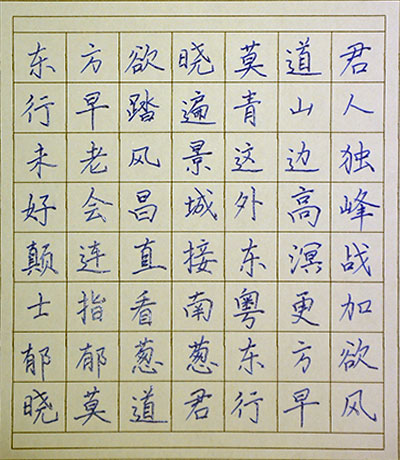 东方欲晓莫道君
行早踏遍青山人
未老风景这边独
好会昌城外高峰
颠连直接东溟战
士指看南粤更加
郁郁葱葱东方欲
晓莫道君行早风